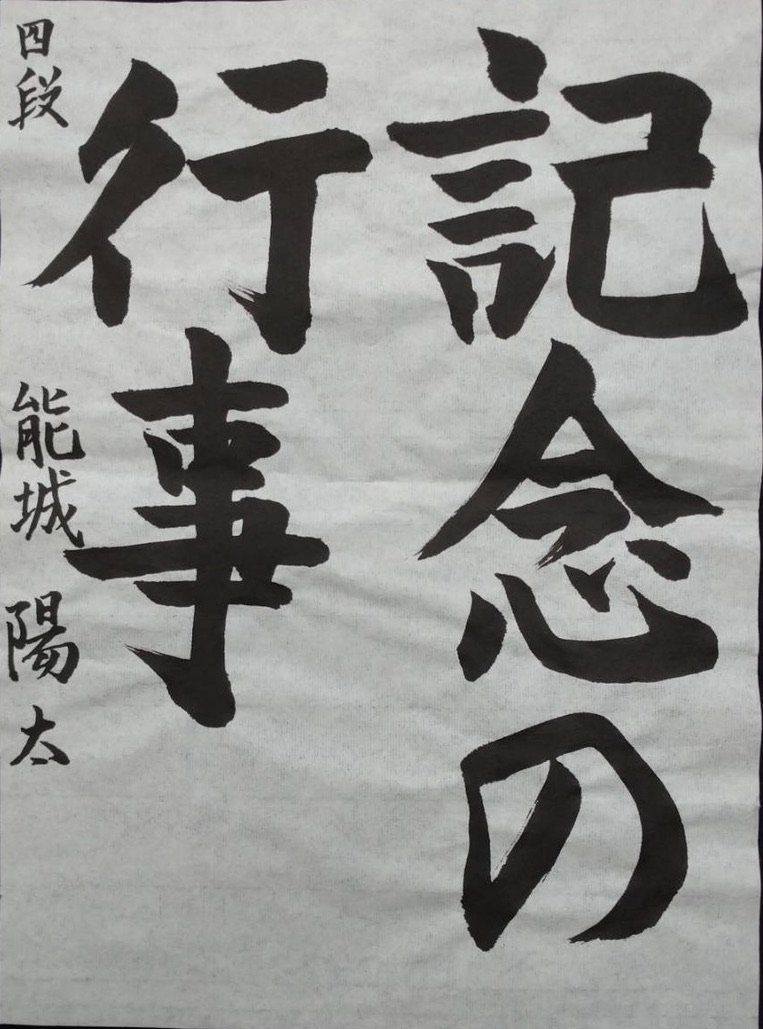 記念の
行事
四段 能城 陽太